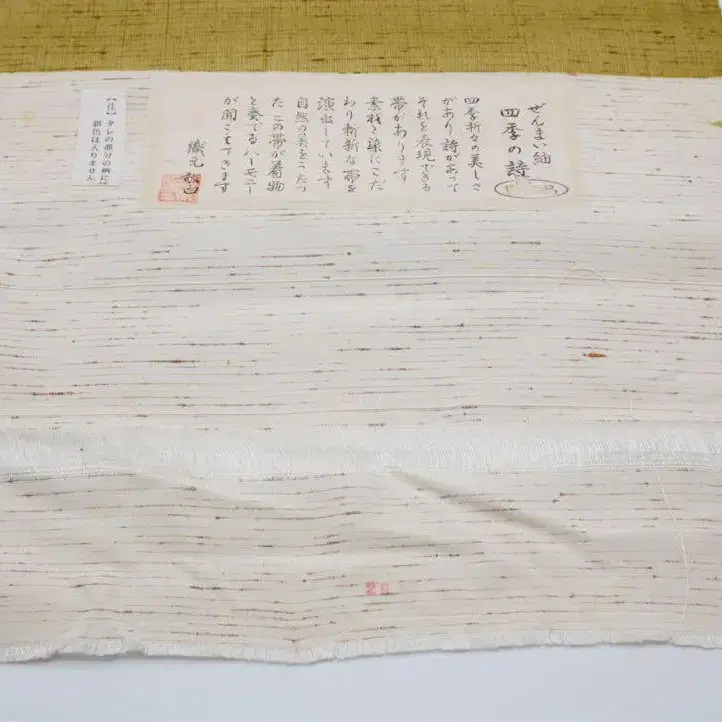 ぜんまい紬
四季の詩
四季折々の美しさ
があり詩があって
それを表現できる
帯があります
素材と緑にこだ
わり斬新な帯を
演出しています
自然の美をうたっ
た この帯が着物
と奏でるハーモニー
が聞こえてきます
織元 敬白
【注】タレの部分の柄に
顔色は入りません